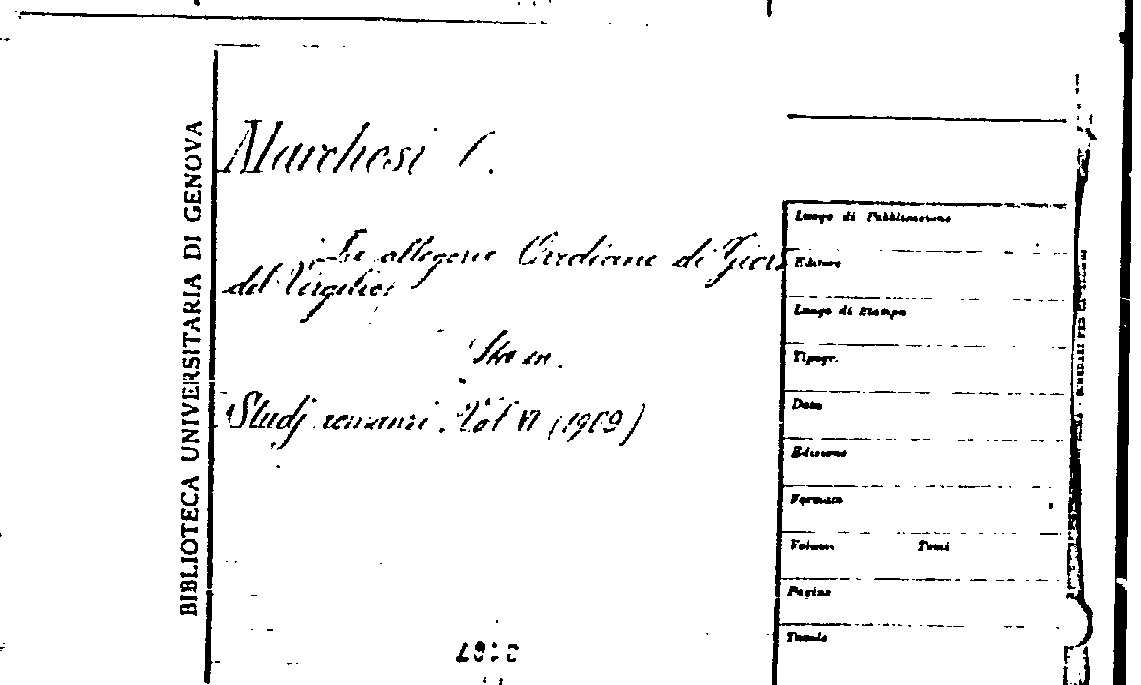 BIBLIOTECA UNIVERSITARIA DI GENOVA
Marchesi C.
Le allegorie Ovidiane di Giov.
del Virgilio
Sta in.
Studj romanzi. Vol VI (1909)
Luogo di Pubblicazione
Editore
Luogo di Stampa
Tipogr.
Data
Edizione
Formato
Volumi Tomi
Pagine
Tavole